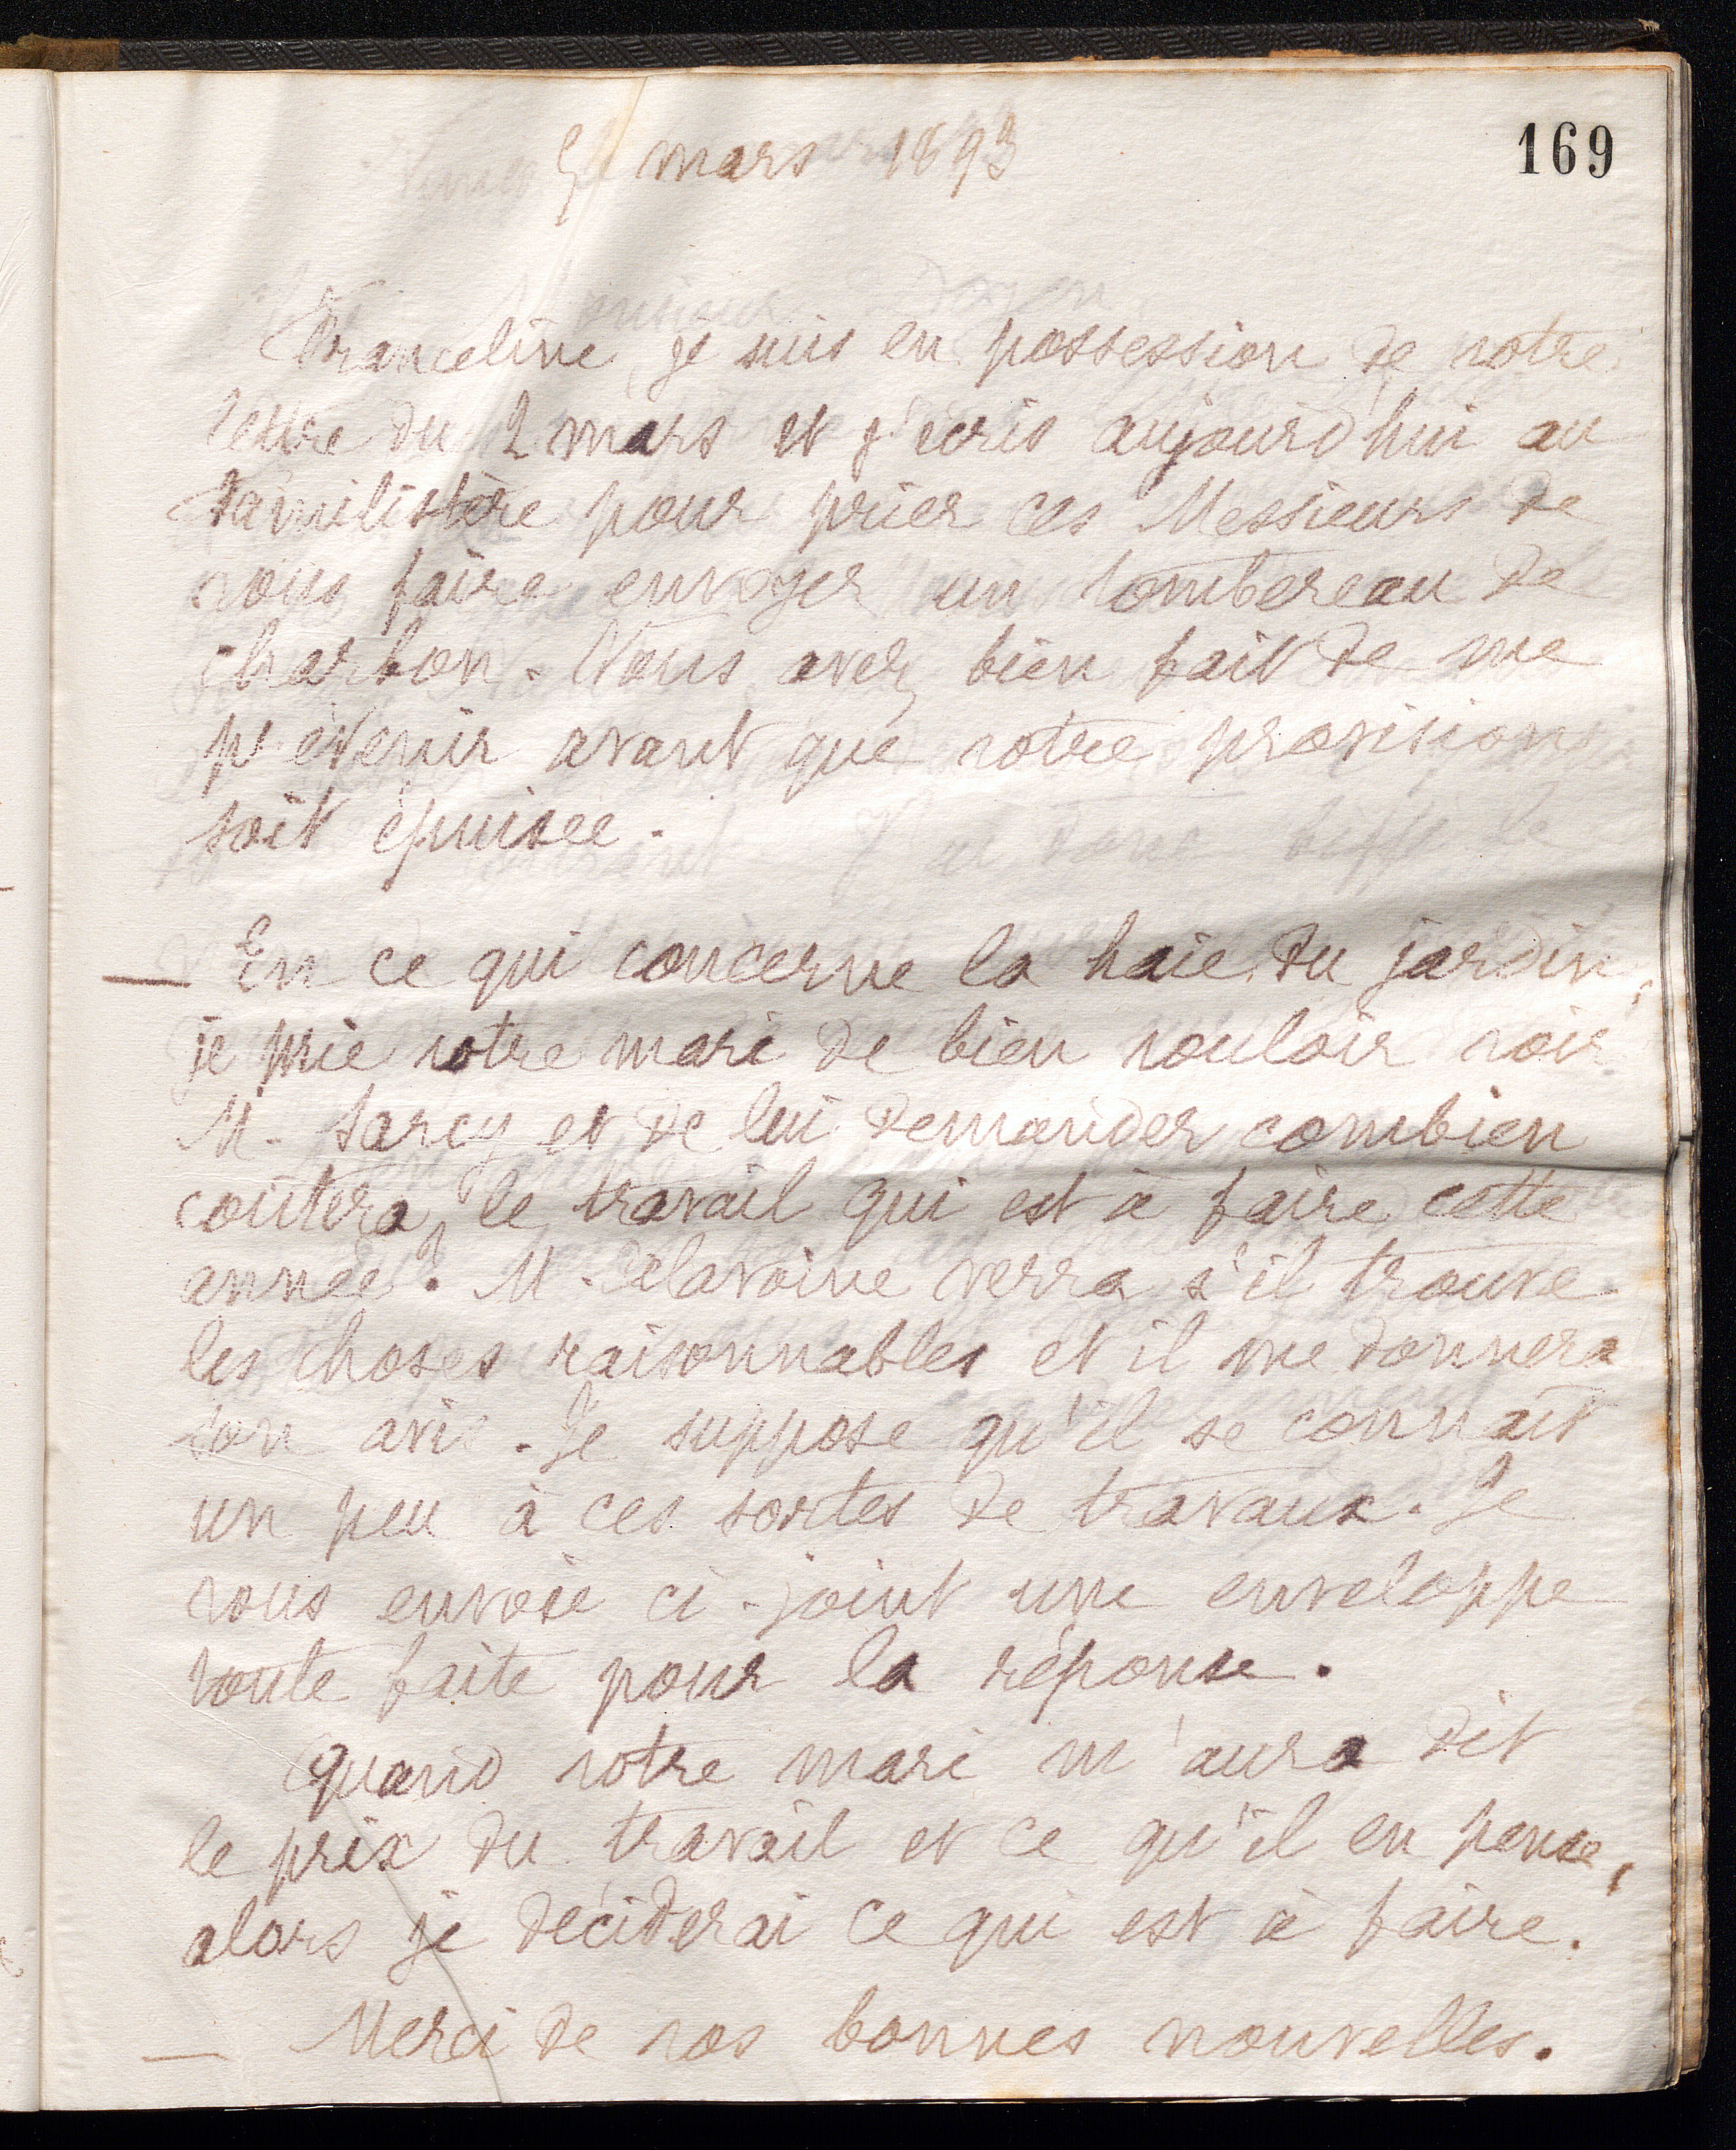 169
mars 1893
Franceline, je suis en possession de votre
lettre du 2 mars et j'écris aujourd'hui au
Familistère pour prier ces Messieurs de
vous faire envoyer un tombereau de
charbon. Vous avez bien fait de me
prévenir avant que votre provision
soit épuisée.
— En ce qui concerne la haie du jardin,
je prie votre mari de bien vouloir voir
M. Sarcy et de lui demander combien
coûtera le travail qui est à faire cette
année? M. Delavoine verra s'il trouve
les choses raisonnables et il me donnera
son avis. Je suppose qu'il se connait
un peu à ces sortes de travaux. Je
vous envoie ci-joint une enveloppe
toute faite pour la réponse.
Quand votre mari m'aura dit
le prix du travail et ce qu'il en pense,
alors je déciderai ce qui est à faire.
— Merci de vos bonnes nouvelles.